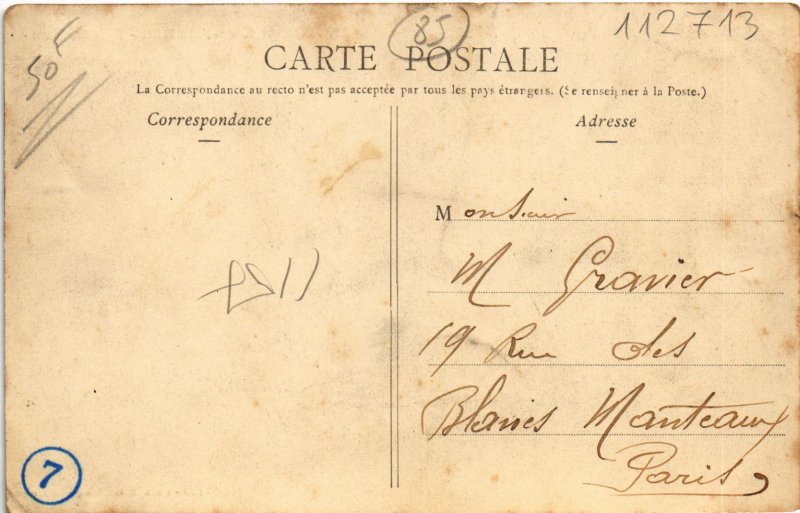 50F
85
112713
CARTE POSTALE
La Correspondance au recto n'est pas acceptée par tous les pays étrangers. (Se renseigner à la Poste.)
Correspondance
Adresse
Monsieur
M Gravier
19 Rue des
Blancs Manteaux
Paris
7